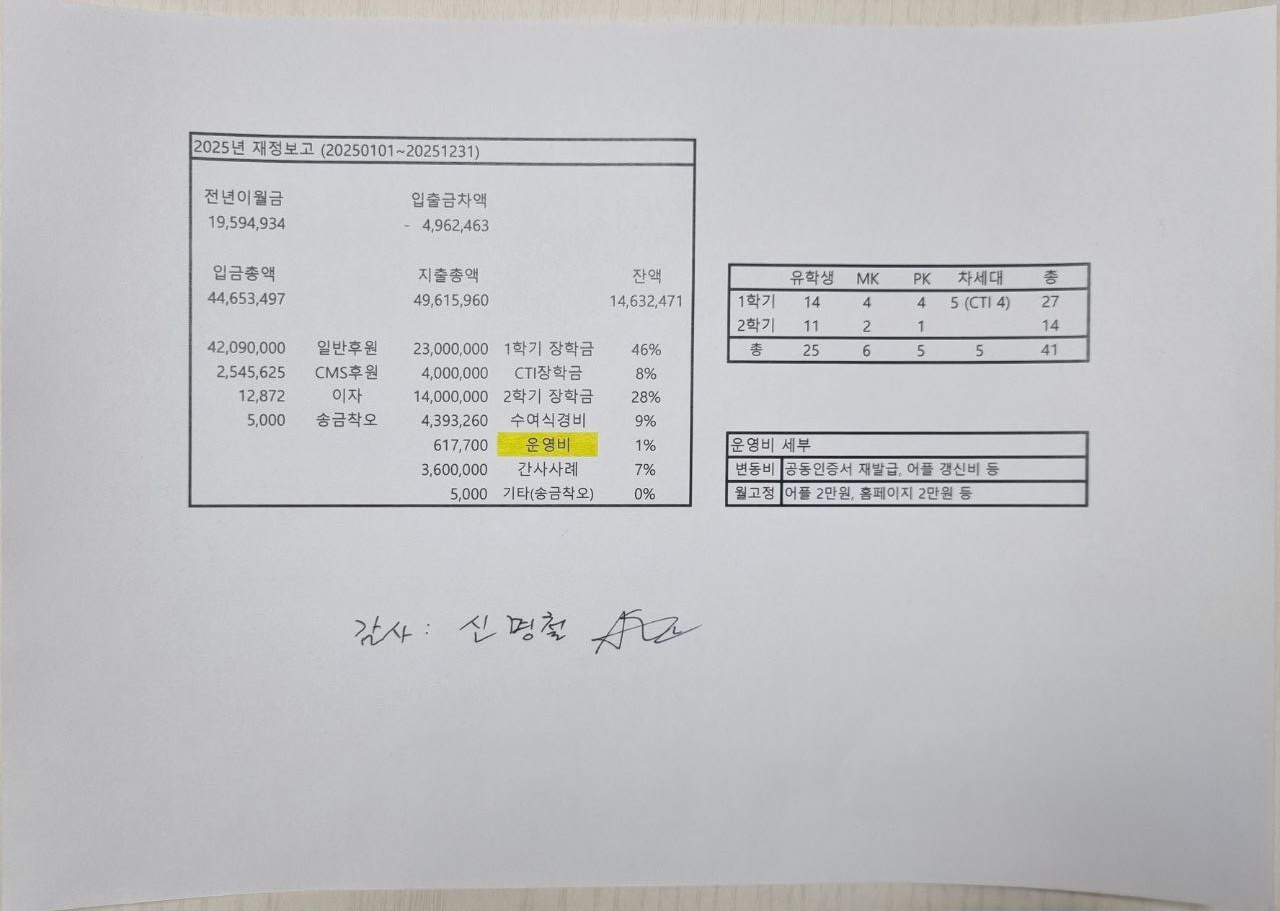 2025년 재정보고 (20250101~20251231)
전년이월금 입출금차액
19,594,934 - 4,962,463
입금총액 지출총액 잔액
44,653,497 49,615,960 14,632,471
42,090,000 일반후원 23,000,000 1학기 장학금 46%
2,545,625 CMS후원 4,000,000 CTI장학금 8%
12,872 이자 14,000,000 2학기 장학금 28%
5,000 송금착오 4,393,260 수여식경비 9%
617,700 운영비 1%
3,600,000 간사사례 7%
5,000 기타(송금착오) 0%
유학생 MK PK 차세대 총
1학기 14 4 4 5 (CTI 4) 27
2학기 11 2 1 14
총 25 6 5 5 41
운영비 세부
변동비 공동인증서 재발급, 어플 갱신비 등
월고정 어플 2만원, 홈페이지 2만원 등
감사: 신명철